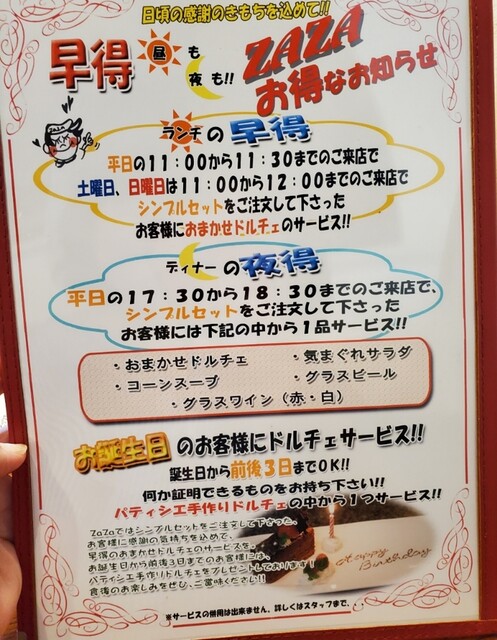 日頃の感謝のきもちを込めて!!
早得 昼も 夜も!! ZAZA お得なお知らせ
ランチの早得
平日の11:00から11:30までのご来店で
土曜日、日曜日は11:00から12:00までのご来店で
シンプルセットをご注文して下さった
お客様におまかせドルチェのサービス!!
ディナーの夜得
平日の17:30から18:30までのご来店で、
シンプルセットをご注文して下さった
お客様には下記の中から1品サービス!!
・おまかせドルチェ ・気まぐれサラダ
・コーンスープ ・グラスビール
・グラスワイン（赤・白）
お誕生日のお客様にドルチェサービス!!
誕生日から前後3日までOK!!
何か証明できるものをお持ち下さい!!
パティシエ手作りドルチェの中から1つサービス!!
ZaZaではシンプルセットをご注文して下さった、
お客様に感謝の気持ちを込めて、
早得のおまかせドルチェのサービスを。
お誕生日から前後3日までのお客様には、
パティシエ手作りドルチェをプレゼントしております!
食後のお楽しみをぜひ、ご賞味ください!!
Happy Birthday
※サービスの併用は出来ません、詳しくはスタッフまで、、、